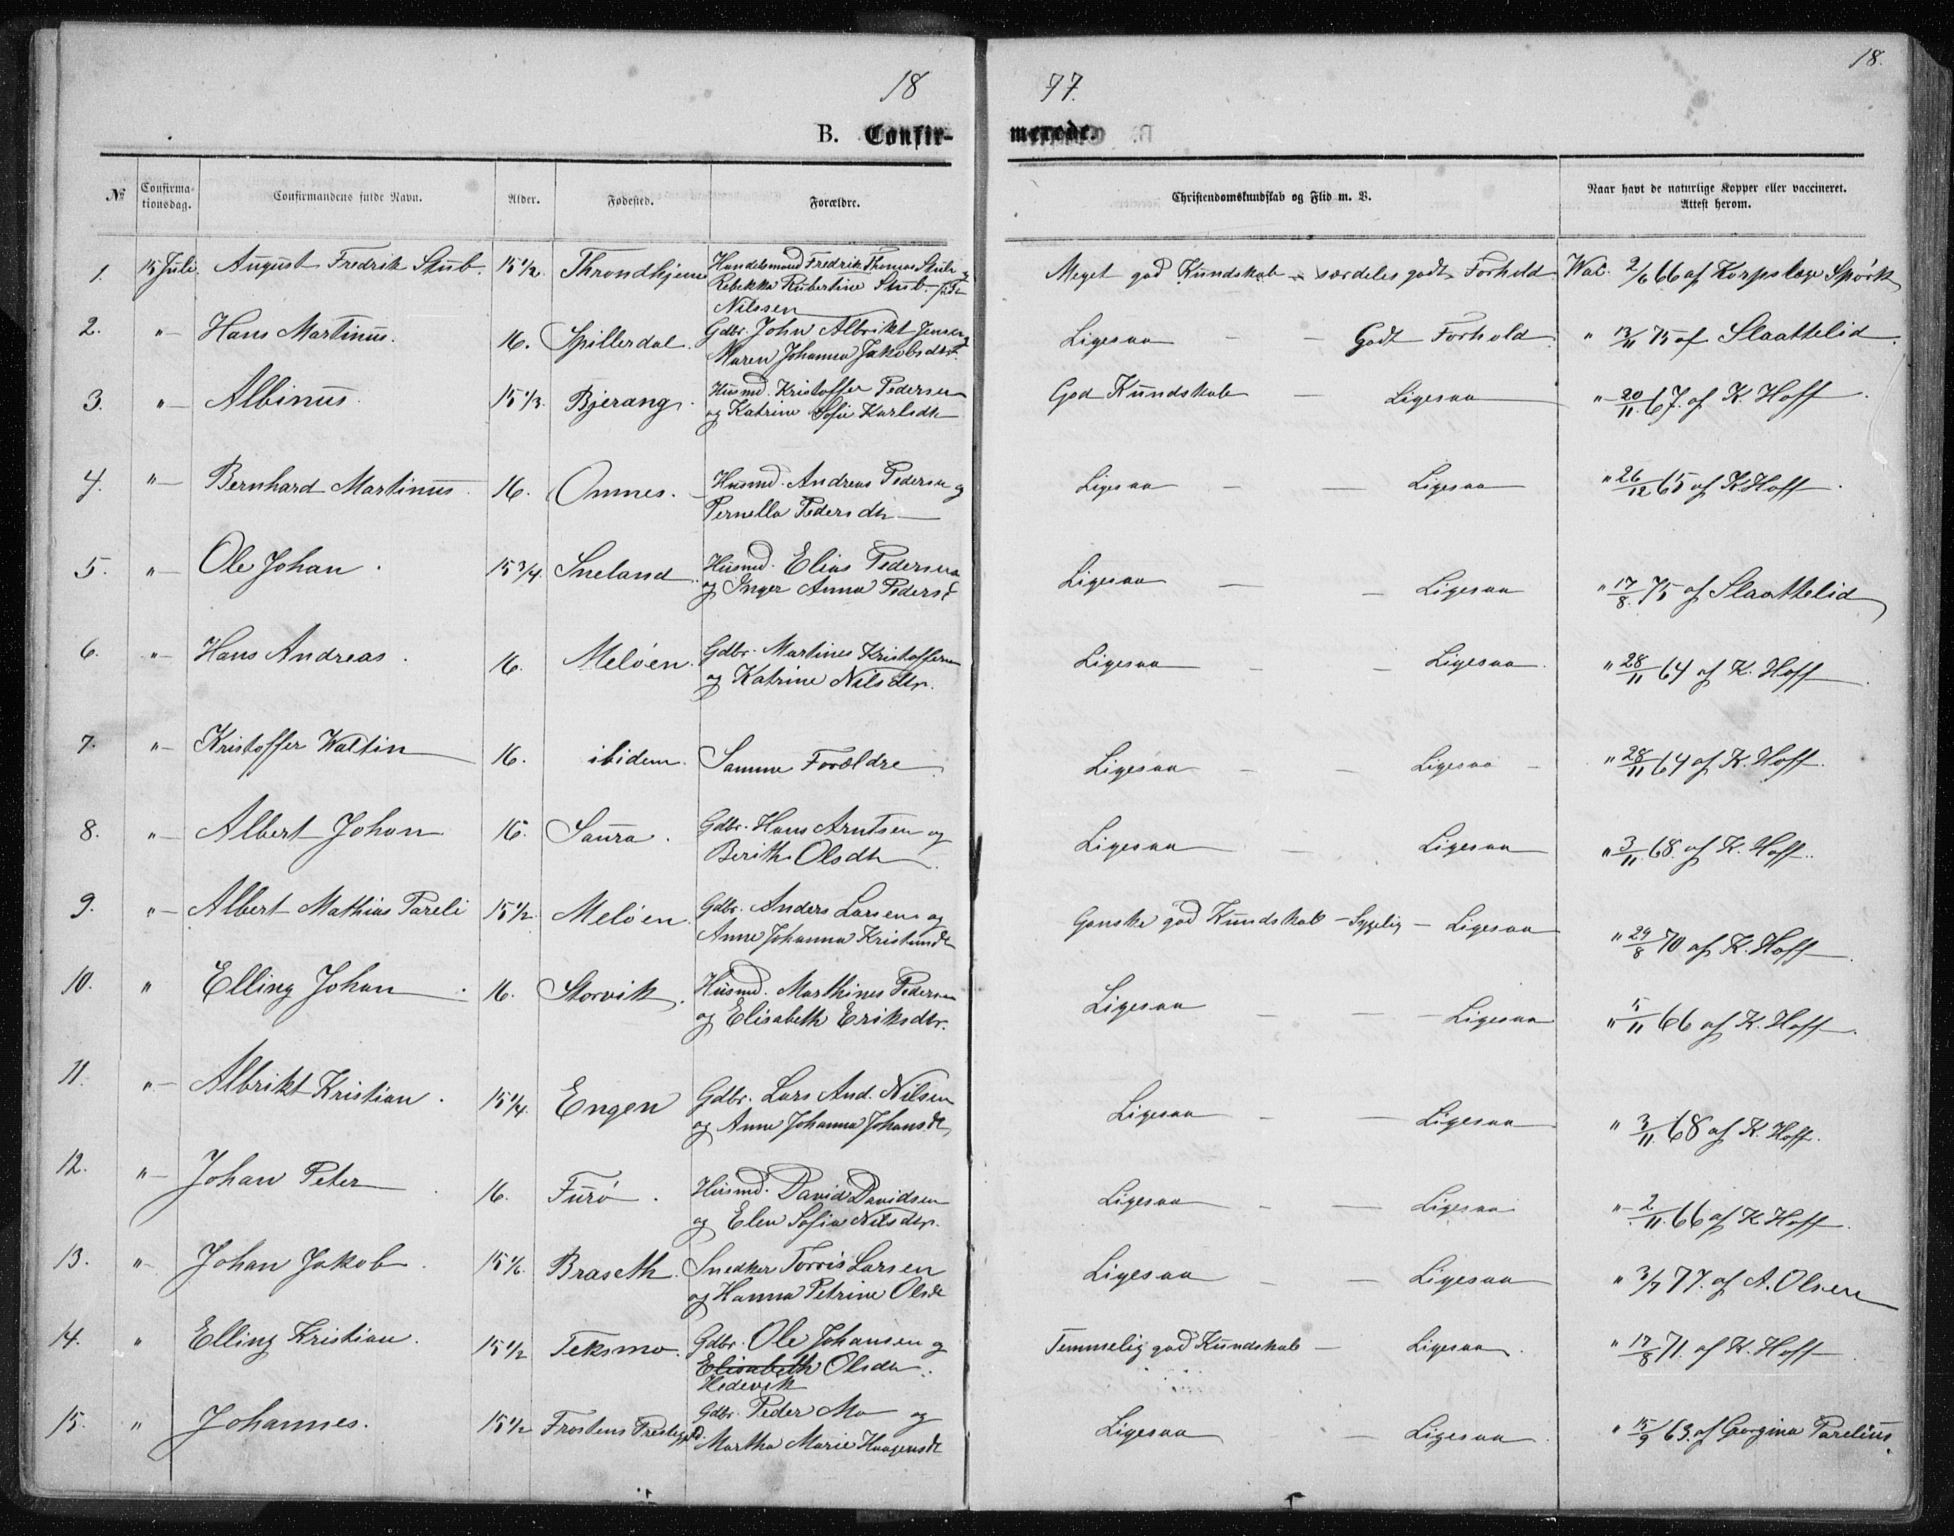 18 77. 18.
B. Confir- merede.
№ Confirmationsdag. Confirmandens fulde Navn. Alder. Fødested. Forældre. Christendomskundskab og Flid m. V. Naar havt de naturlige Kopper eller vaccineret. Attest herom.
1. 15 Juli. August Fredrik Stub. 15 1/2. Throndhjem Handelsmand Fredrik Thomas Stub og Rebekka Kubertine Stub. født Nilssen Meget god Kundskab - særdeles godt Forhold Vac. 2/6 66 af Korpslæge Spørk
2. " Hans Martinus. 16. Spillerdal. Gdbr. John Albrikt Jensen og Maren Johanna Jakobsdtr. Ligesaa - - Godt Forhold " 13/11 75 af Slaattelid.
3. " Albinus. 15 1/3. Bjerang. Husmd. Kristoffer Pedersen og Katrine Sofie Karlsdtr God Kundskab - Ligesaa " 20/11 67. af K. Hoff.
4. " Bernhard Martinus. 16. Omnes. Husmd. Andreas Pedersen og Pernella Pedersdtr Ligesaa - - Ligesaa " 26/12 65 af K. Hoff.
5. " Ole Johan. 15 3/4. Sneland. Husmd. Elias Pedersen og Inger Anna Pedersd Ligesaa - - Ligesaa " 17/8. 75 af Slaattelid
6. " Hans Andreas. 16. Meløen. Gdbr. Martines Kristoffersen og Katrine Nilsdtr. Ligesaa - - Ligesaa. " 28/11 64 af K. Hoff.
7. " Kristoffer Waltin 16. ibidem. Samme Forældre. Ligesaa - - Ligesaa - " 28/11 64 af K. Hoff.
8. " Albert Johan 15. Saura. Gdbr. Hans Arntsen og Berith Olsdtr. Ligesaa - - Ligesaa " 3/11 68. af K. Hoff.
9. " Albert Mathias Pareli 15 1/2 Meløen. Gdbr. Anders Larsen og Anne Johanna Kristensdtr Ganske god Kundskab - Sygelig - Ligesaa " 29/8 70 af K. Hoff.
10. " Elling Johan. 16. Storvik. Husmd. Marthines Pedersen og Elisabeth Eriksdtr. Ligesaa - - - Ligesaa " 5/11 66 af K. Hoff.
11. " Albrikt Kristian. 15 1/4. Engen Gdbr. Lars And. Nilsen og Anne Johanna Johansdtr Ligesaa - - Ligesaa " 3/11 68 af K. Hoff.
12. " Johan Peter. 16. Furø. Husmd. David Davidsen og Elen Sofia Nilsdtr. Ligesaa - - Ligesaa " 2/11. 66 af K. Hoff.
13. " Johan Jakob. 15 1/6. Braseth. Snedker Torris Larsen og Hanna Petrine Olsdtr Ligesaa - - Ligesaa " 3/7 77. af A. Olsen
14. " Elling Kristian. 15 1/2 Teksmo. Gdbr. Ole Johansen og Elisabeth Olsdtr. Hedevik Temmelig god Kundskab - Ligesaa. " 17/8 71. af K. Hoff.
15. " Johannes. 15 1/2 Frostens Prestegjeld. Gdbr. Peder Mo og Martha Marie Haagensdtr Ligesaa - - Ligesaa. " 15/9 63. af Georgina Parelius.